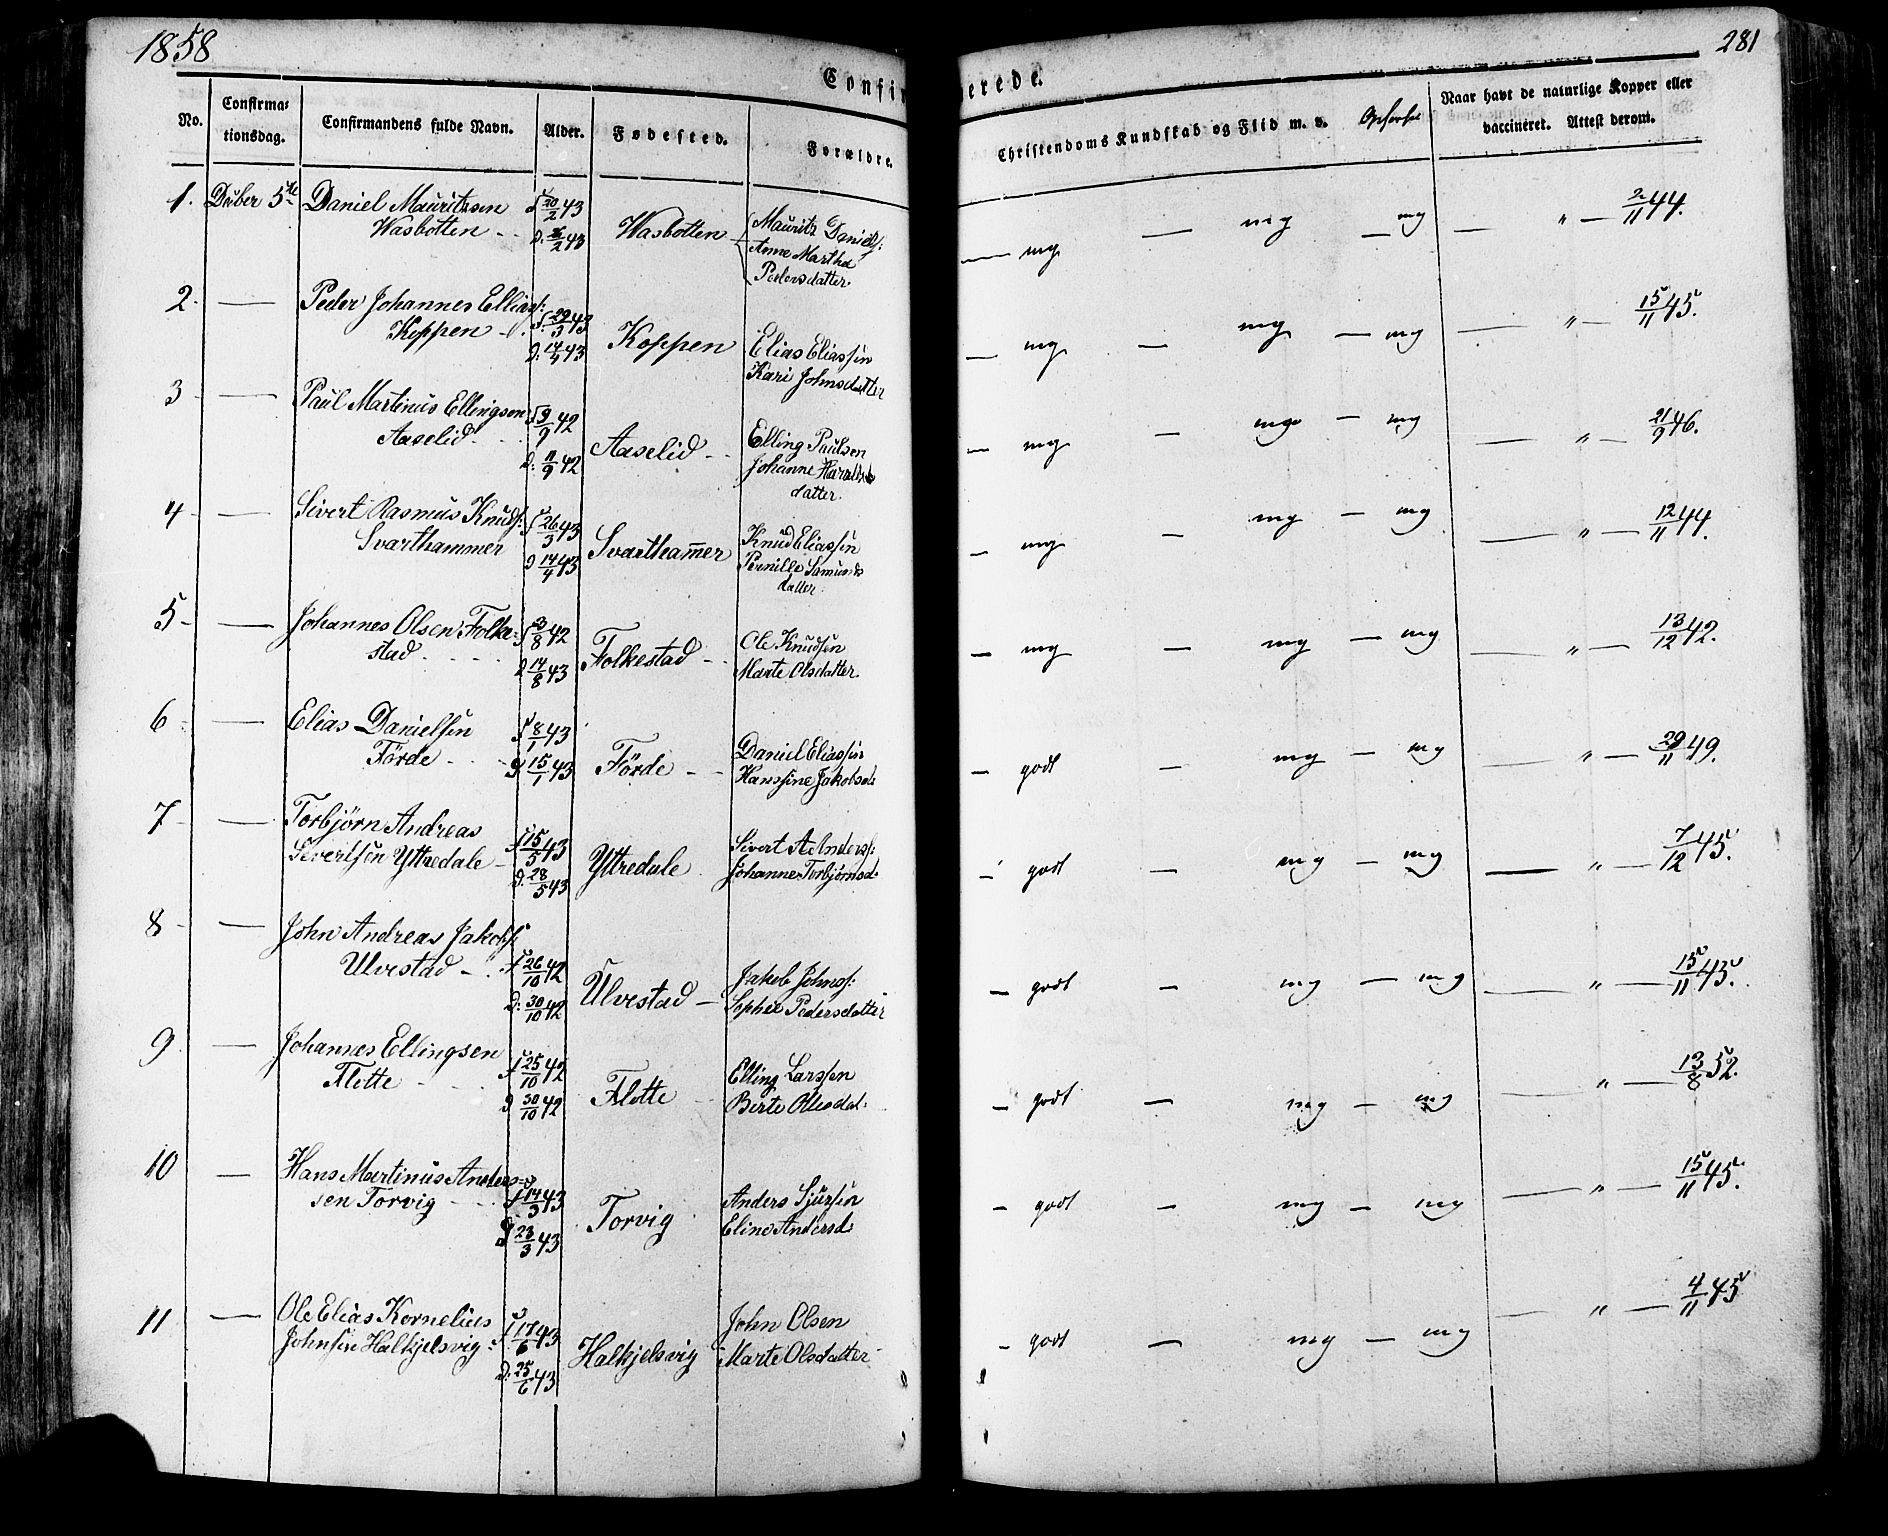 1858
281
Confirmerede.
No.
Confirma=
tionsdag.
Confirmandens fulde Navn.
Alder.
Fødested.
Forældre.
Christendoms Kundskab og Flid m. v.
Opførsel
Naar havt de naturlige Kopper eller
vaccineret. Attest derom.
1. Dcber 5te Daniel Mauritzsen f 20/2 43
Wasbotten d. 26/2 43 Wasbotten Mauritz Daniels:
Anne Martha
Pedersdatter.
mg — mg — mg — " — 2/11 44.
2. — Peder Johannes Ellias: f. 29/3 43
Koppen d. 14/4 43 Koppen Elias Eliassen
Kari Johnsdatter
mg — mg — mg — " — 15/11 45.
3 — Paul Martinus Ellingsen f 9/9 42
Aaselid d: 11/9 42 Aaselid Elling Paulsen
Johanne Haralds
datter.
mg — mg — mg — " — 21/9 46.
4 — Sivert Rasmus Knuds: f 26/3 43
Svarthammer d 14/4 43 Svartham̄er Knud Eliassen
Pernille Samunds
datter.
mg — mg — mg — " — 12/11 44.
5 — Johannes Olsen Folke= f 3/8 42
stad d 14/8 43 Folkestad Ole Knudsen
Marte Olsdatter.
mg — mg — mg — " — 13/12 42.
6 — Elias Danielsen f 8/1 43
Förde d 15/1 43 Förde Daniel Eliassen
Hanssine Jakobsd:
godt — mg — mg — " — 29/11 49.
7 — Torbjørn Andreas f 15/5 43
Sivertsen Yttredale d. 28/5 43 Yttredale Sivert Anderss:
Johanne Torbjørnsd:
godt — mg — mg — " — 7/12 45.
8 — John Andreas Jakobs: f 26/10 42
Ulvestad d: 30/10 42 Ulvestad Jakob Johns:
Sophie Pedersdatter
godt — mg — mg — " — 15/11 45.
9 — Johannes Ellingsen f 25/10 42
Flotte d 30/10 42 Flotte Elling Larssen
Berte Olesdat:
godt — mg — mg — " — 13/8 52.
10 — Hans Martinus Anders= f 14/3 43
sen Torvig d 23/3 43 Torvig Anders Sjursen
Eline Andersd:
godt — mg — mg — " — 15/11 45.
11 — Ole Elias Kornelius f 17/6 43
Johnsen Halkjelsvig d: 25/6 43 Halkjelsvig John Olsen
Marte Olsdatter
godt — mg — mg — " — 4/11 45